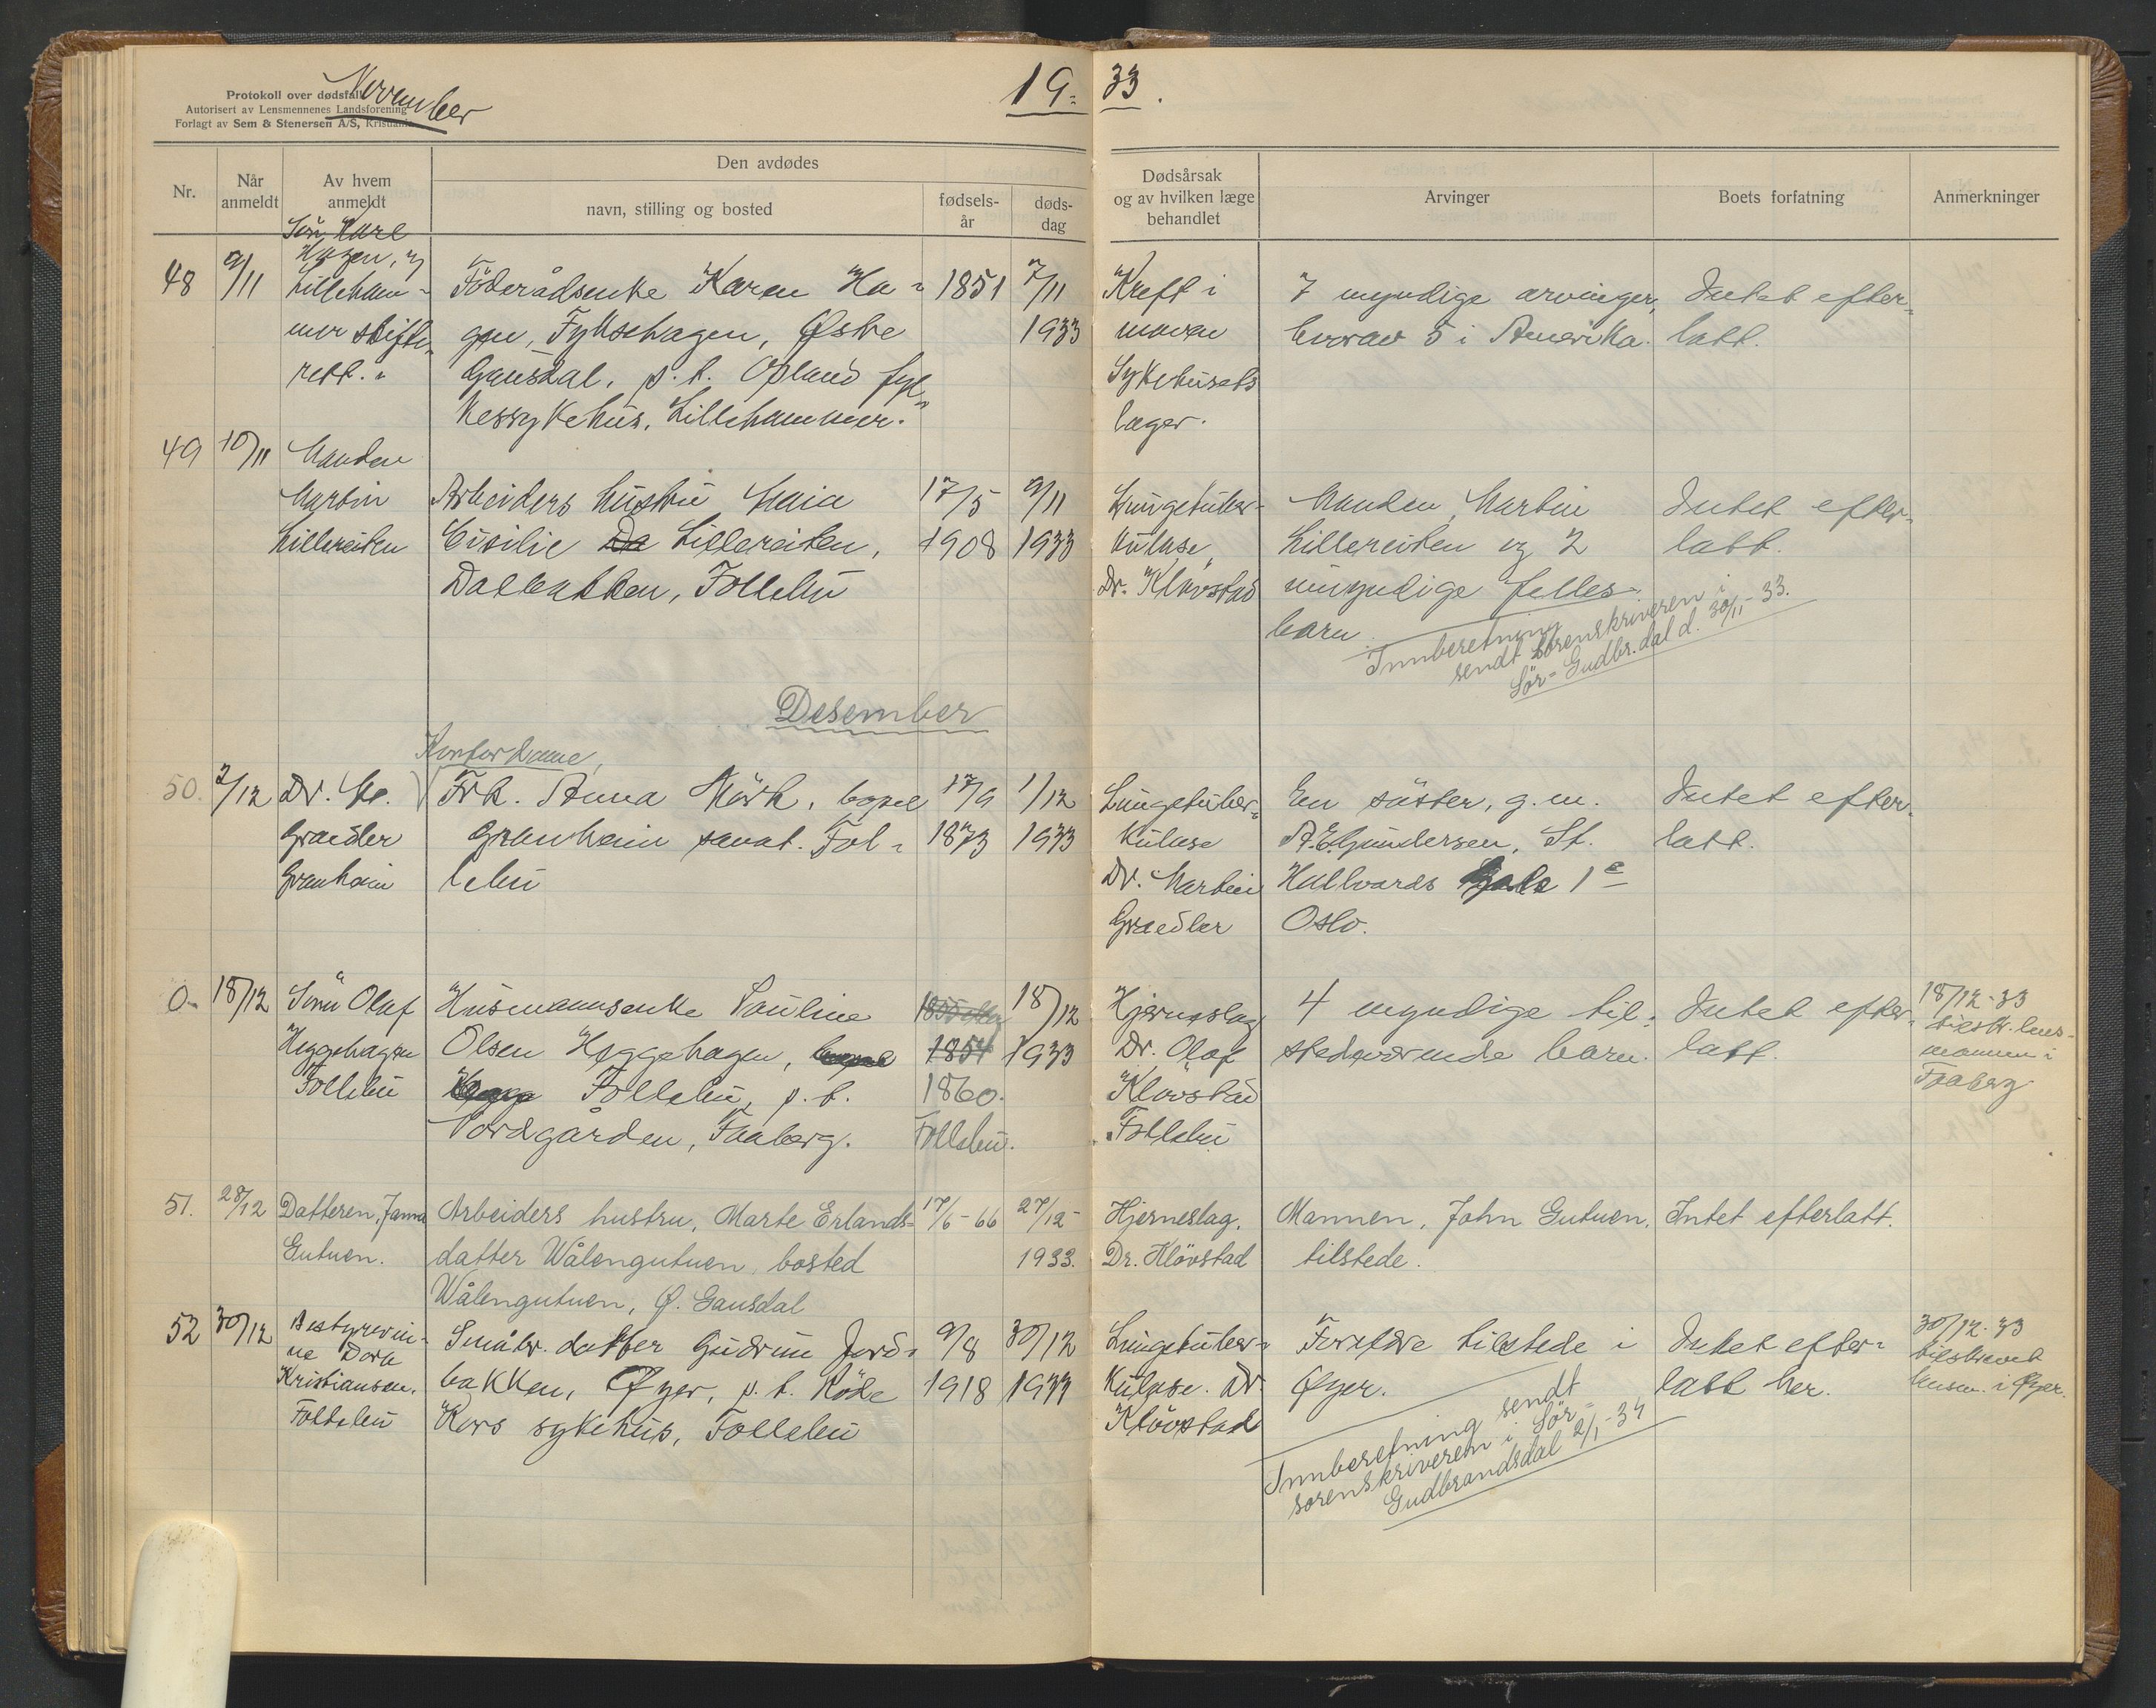 Protokoll over dødsfall
Autorisert av Lensmennenes Landsforening
Forlagt av Sem & Stenersen A/S, Kristiania
November
19 33.
Nr.
Når anmeldt
Av hvem anmeldt
Den avdødes
navn, stilling og bosted
fødsels-år
døds-dag
Dødsårsak
og av hvilken læge
behandlet
Arvinger
Boets forfatning
Anmerkninger
48
9/11
Sön Kare
Hagen, og
Lilleham-
mer skifte-
rett.
Föderådsenke Karen Ha-
gen, Fyksehagen, Østre
Gausdal, p.t. Opland fyl-
kessykehus, Lillehammer.
1851
7/11
1933
Kreft i
maven
Sykehusets
læger.
7 myndige arvinger,
hvorav 5 i Amerika.
Intet efter-
latt.
49
10/11
Manden
Martin
Lillereiten
Arbeiders hustru Maia
Cisilie Da Lillereiten,
Dalbakken, Follebu
17/5
1908
9/11
1933
Lungetuber-
kulose
Dr. Klövstad
Manden, Martin
Lillereiten og 2
umyndige felles-
barn.
Intet efter-
latt.
Innberetning
sendt sorenskriveren i
Sör-Gudbr.dal d. 30/11-33.
Desember
Kontordame,
50.
2/12
Dr. M.
Graedler
Granheim
Frk. Anna Mörk, bopel
Granheim sanat. Fol-
lebu
17/9
1873
1/12
1933
Lungetuber-
kulose
Dr. Martin
Graedler
En söster, g.m.
A.E. Gundersen, St.
Hallvards Gate 1 e
Oslo.
Intet efter-
latt.
0-
18/12
Sönn Olaf
Heggehagen
Follebu
Husmannsenke Pauline
Olsen Heggehagen, bopel
Follebu, p.t.
Nordgården, Faaberg.
1854
1860.
Follebu.
18/12
1933
Hjerneslag
Dr. Olaf
Klövstad
Follebu
4 myndige til-
stedeværende barn.
Intet efter-
latt.
18/12-33
tilskr. lens-
mannen i
Faaberg
51.
28/12
Datteren, Janna
Gutuen.
Arbeiders hustru, Marte Erlands-
datter Wålengutuen, bosted
Wålengutuen, Ø. Gausdal
17/6-66
27/12-
1933.
Hjerneslag.
Dr. Klövstad
Mannen, John Gutuen,
tilstede.
Intet efterlatt.
52
30/12
Bestyrerin-
ne Dora
Kristiansen,
Follebu
Småbr. datter Gudrun Jord-
bakken, Øyer, p.t. Röde
Kors sykehus, Follebu
9/8
1918
30/12
1933
Lungetuber-
kulose. Dr.
Klövstad
Foreldre tilstede i
Øyer.
Intet efter-
latt her.
30/12-33
tilskrevet
lensm. i Øyer.
Innberetning sendt
sorenskriveren i Sör-
Gudbrandsdal 2/1-34